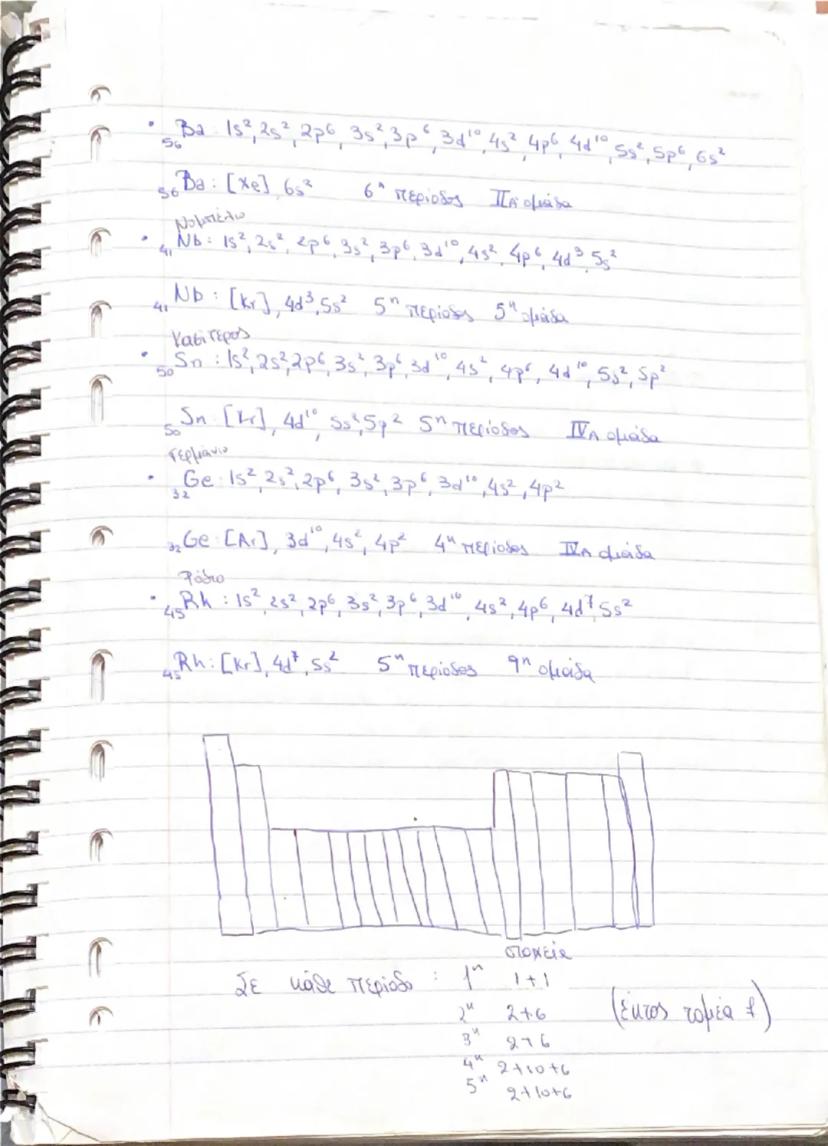 • ₅₆Ba : 1s², 2s², 2p⁶, 3s², 3p⁶, 3d¹⁰, 4s², 4p⁶, 4d¹⁰, 5s², 5p⁶, 6s²
₅₆Ba : [Xe], 6s² 6η περίοδος IIA ομάδα
• ₄₁Nb : 1s², 2s², 2p⁶, 3s², 3p⁶, 3d¹⁰, 4s², 4p⁶, 4d³, 5s²
₄₁Nb : [Kr], 4d³, 5s² 5η περίοδος 5η ομάδα
Κασίτερος
• ₅₀Sn : 1s², 2s², 2p⁶, 3s², 3p⁶, 3d¹⁰, 4s², 4p⁶, 4d¹⁰, 5s², 5p²
₅₀Sn : [Kr], 4d¹⁰, 5s², 5p² 5η περίοδος IVA ομάδα
Γερμάνιο
• ₃₂Ge : 1s², 2s², 2p⁶, 3s², 3p⁶, 3d¹⁰, 4s², 4p²
₃₂Ge : [Ar], 3d¹⁰, 4s², 4p² 4η περίοδος IVA ομάδα
Ρόδιο
• ₄₅Rh : 1s², 2s², 2p⁶, 3s², 3p⁶, 3d¹⁰, 4s², 4p⁶, 4d⁷, 5s²
₄₅Rh : [Kr], 4d⁷, 5s² 5η περίοδος 9η ομάδα
στοιχεία
Σε κάθε περίοδο : 1η 1+1
2η 2+6 (έκτος τομέα f)
3η 2+6
4η 2+10+6
5η 2+10+6